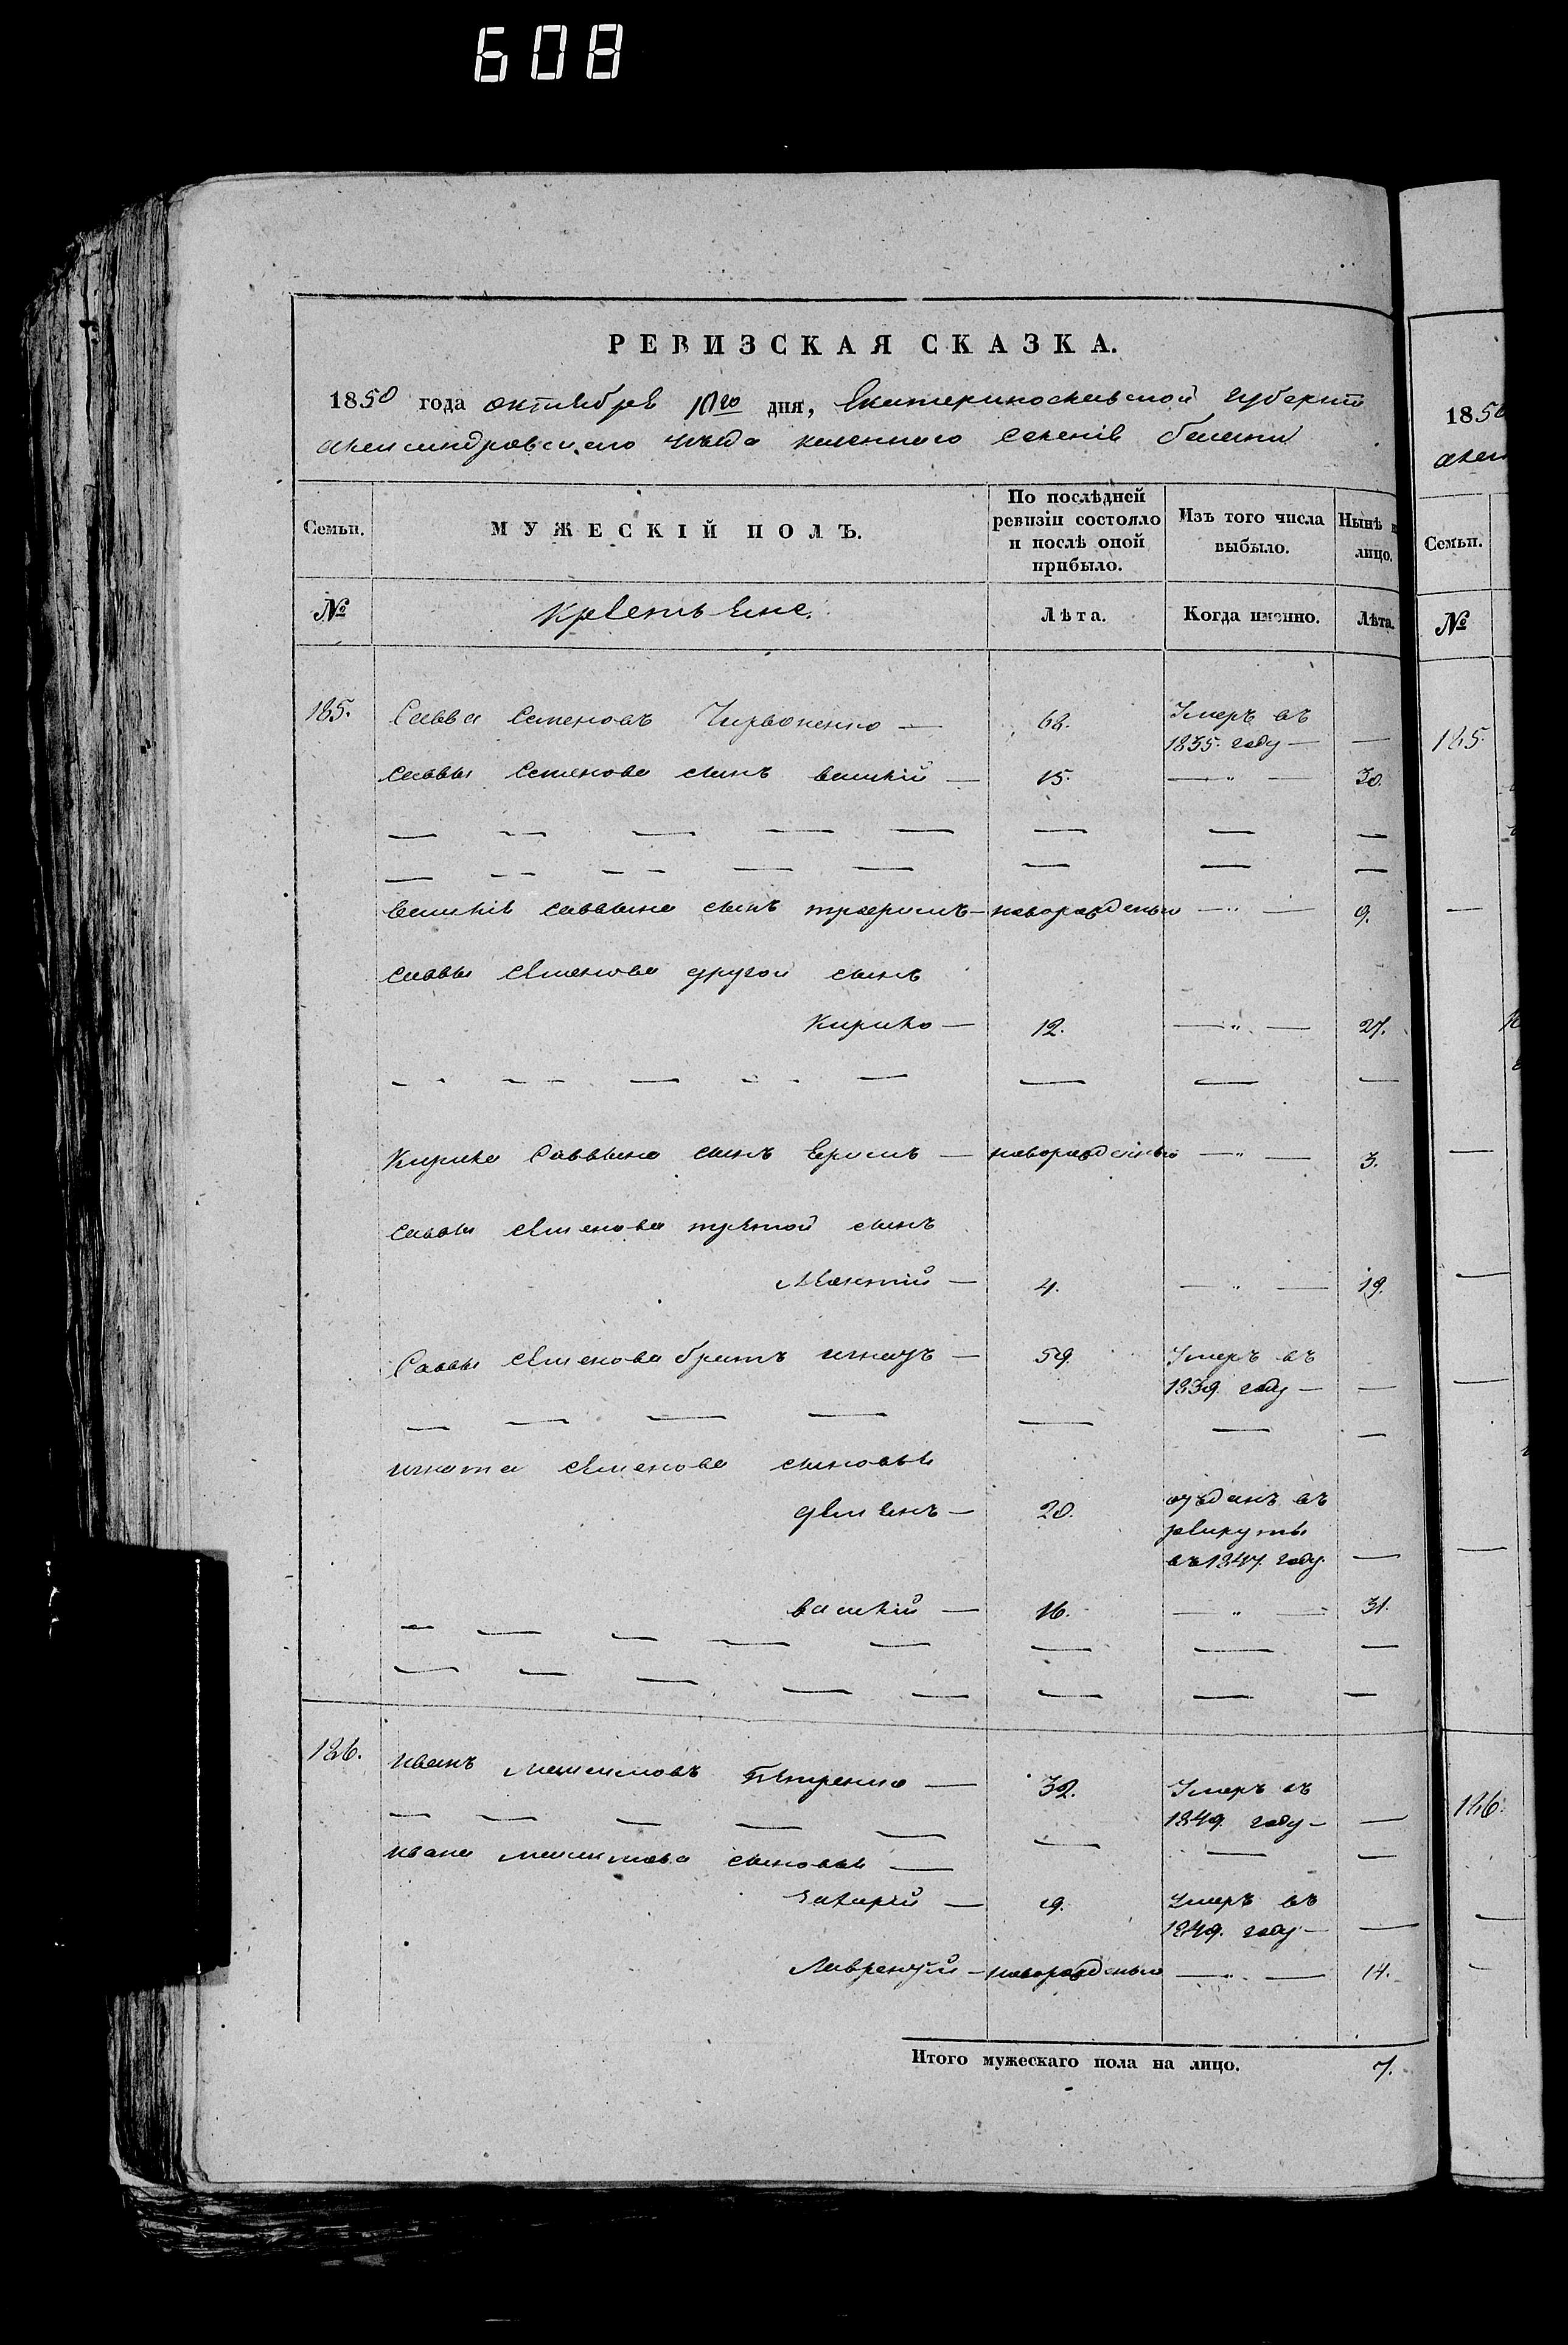 608
РЕВИЗСКАЯ СКАЗКА.
1850 года октября 10го дня, Екатеринославской губернии
александровского уезда казенного селения белени
Семьи.
МУЖЕСКІЙ ПОЛЪ.
По послѣдней ревизіи состояло и послѣ оной прибыло.
Изъ того числа выбыло.
Нынѣ н
лицо.
№
Крестьяне.
Лѣта.
Когда именно.
Лѣта.
185. Савва Семеновъ Чирвоненко — 68. Умеръ въ
1835. году — —
Саввы Семенова сынъ василій — 15. — " — 30.
Василія саввина сынъ трофимъ — новорожденый — " — 9.
Саввы Семенова другой сынъ
Кирило — 12. — " — 27.
Кирила Саввина сынъ Ефимъ — новорожденый — " — 3.
Саввы Семенова третой сынъ
Леонтий — 4. — " — 19.
Саввы Семенова братъ игнатъ — 59. Умеръ въ
1839. году — —
игната Семенова сыновья
демьянъ — 20. отданъ въ
рекруты
въ 1847. году. —
василий — 16. — " — 31.
186. иванъ максимовъ Петренко — 32. Умеръ въ
1849. году — —
ивана максимова сыновья —
захарий — 9. Умеръ въ
1849. году — —
Лаврентий — новорожденый — " — 14.
Итого мужескаго пола на лицо. 7.
1850
алек
Семьи.
№
185.
186.